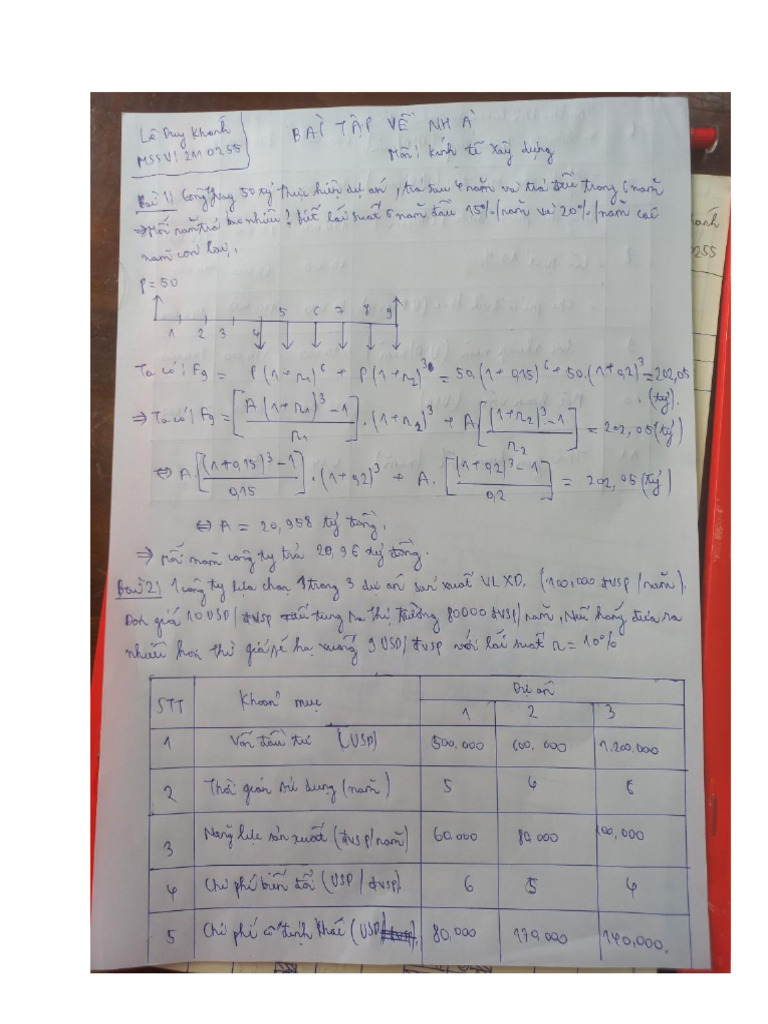 Lê Duy Khanh
MSSV: 2110255
BÀI TẬP VỀ NHÀ
Môn: Kinh tế xây dựng
Bài 1) Công ty vay 50 tỷ thực hiện dự án, trả sau 4 năm và trả đều trong 6 năm
⇒ Mỗi năm trả bao nhiêu? Biết lãi suất 6 năm đầu 15%/năm và 20%/năm các
năm còn lại.
P = 50
1 2 3 4 5 6 7 8 9
Ta có: F9 = P(1+r1)^6 + P(1+r2)^3 = 50.(1+0,15)^6 + 50.(1+0,2)^3 = 202,05
(tỷ).
⇒ Ta có: F9 = [A(1+r1)^3-1 / r1].(1+r2)^3 + A[(1+r2)^3-1 / r2] = 202,05 (tỷ)
⇔ A.[(1+0,15)^3-1 / 0,15].(1+0,2)^3 + A.[(1+0,2)^3-1 / 0,2] = 202,05 (tỷ)
⇔ A = 20,958 tỷ đồng.
⇒ Mỗi năm công ty trả 20,96 tỷ đồng.
Bài 2) 1 công ty lựa chọn 1 trong 3 dự án sản xuất VLXD. (100,000 đvsp/năm).
Đơn giá 10 USD/đvsp nếu tung ra thị trường 80000 đvsp/năm, Nếu hãng đưa ra
nhiều hơn thì giá sẽ hạ xuống 9 USD/đvsp với lãi suất r = 10%
STT Khoản mục Dự án
1 2 3
1 Vốn đầu tư (USD) 500.000 600.000 1.200.000
2 Thời gian sử dụng (năm) 5 6 6
3 Năng lực sản xuất (đvsp/năm) 60.000 80.000 100,000
4 Chi phí biến đổi (USD/đvsp) 6 5 4
5 Chi phí cố định khác (USD) 80,000 140.000.